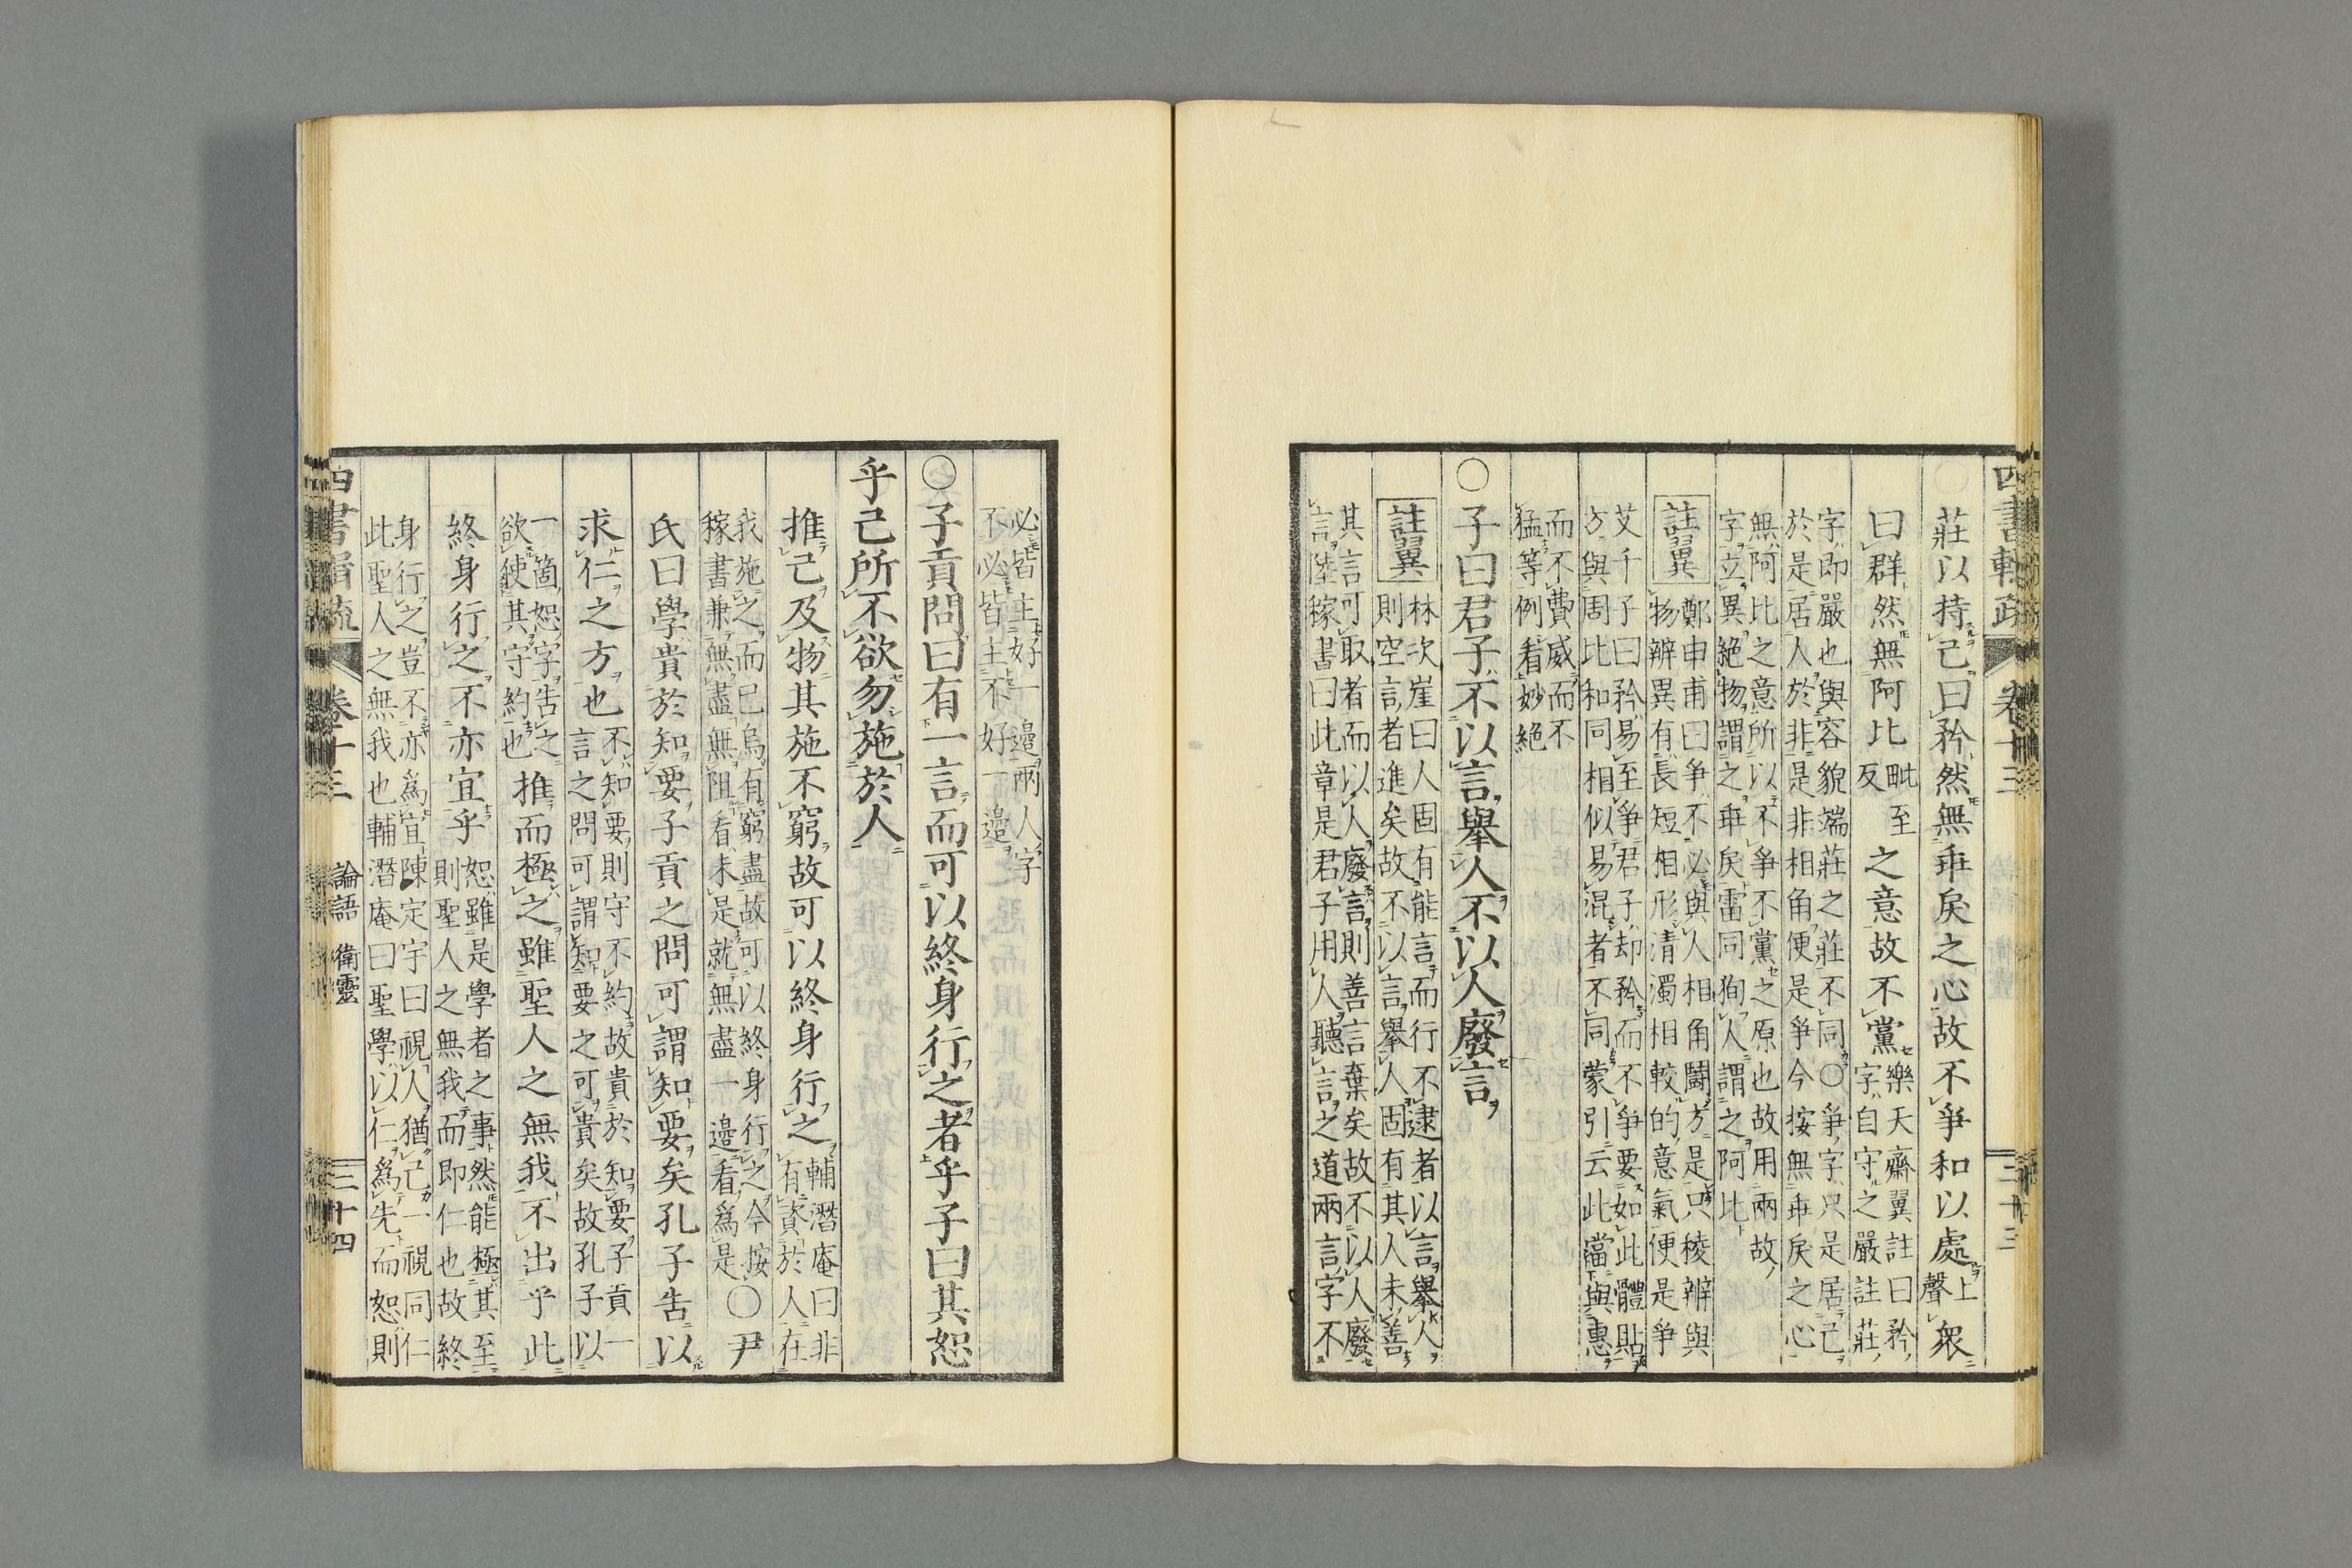 莊以持己曰矜然無乖戾之心故不爭和以處上聲衆
曰群然無阿比毗至反之意故不黨樂天齋翼註曰矜
字自守之嚴註莊
字即嚴也與容貌端莊之莊不同〇爭字只是居己
於是居人於非是非相角便是爭今按無乖戾之心
無阿比之意所以不爭不黨之原也故用兩故
字立異絶物謂之乖矣雷同狥人謂之阿比
註翼
鄭申甫曰爭不必與人相角鬪方是只稜辨與
物辨異有長短相形清濁相較的意氣便是爭
艾千子曰矜易至爭君子却矜而不爭要如此體貼
方與周比和同相似易混者不同蒙引云此當與惠
而不費威而不
猛等例看妙絶
〇子曰君子不以言舉人不以人廢言
註翼
林次崖曰人固有能言而行不逮者以言舉人
則空言者進矣故不以言舉人固有其人未善
其言可取者而以人廢言則善言棄矣故不以人廢
言陸稼書曰此章是君子用人聽言之道兩言字不
四書輯疏 卷十三 三十三
必皆主好一邊兩人字
不必皆主不好一邊
〇子貢問曰有一言而可以終身行之者乎子曰其恕
乎己所不欲勿施於人
推己及物其施不窮故可以終身行之輔潛庵曰非
有資於人在
我施之而已烏有窮盡故可以終身行之今按
稼書兼無盡無阻看未是就無盡一邊看爲是〇尹
氏曰學貴於知要子貢之問可謂知要矣孔子告以
求仁之方也不知要則守不約故貴於知要子貢一
言之問可謂知要之可貴矣故孔子以
一箇恕字告之
欲使其守約也推而極之雖聖人之無我不出乎此
終身行之不亦宜乎恕雖是學者之事然能極其至
則聖人之無我而即仁也故終
身行之豈不亦爲宜陳定宇曰視人猶己一視同仁
此聖人之無我也輔潛庵曰聖學以仁爲先而恕則
卷十三 論語 衛靈 三十四